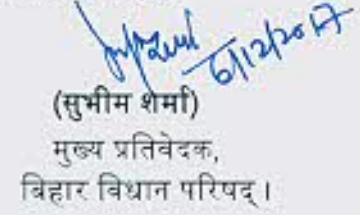 6/12/2017
(सुभीम शर्मा)
मुख्य प्रतिवेदक,
बिहार विधान परिषद्।